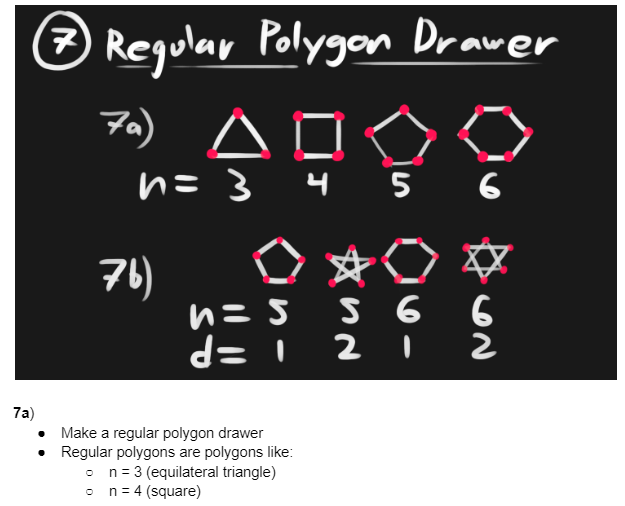 7 Regular Polygon Drawer
7a)
n = 3 4 5 6
7b)
n = 5 5 6 6
d = 1 2 1 2
7a)
● Make a regular polygon drawer
● Regular polygons are polygons like:
○ n = 3 (equilateral triangle)
○ n = 4 (square)